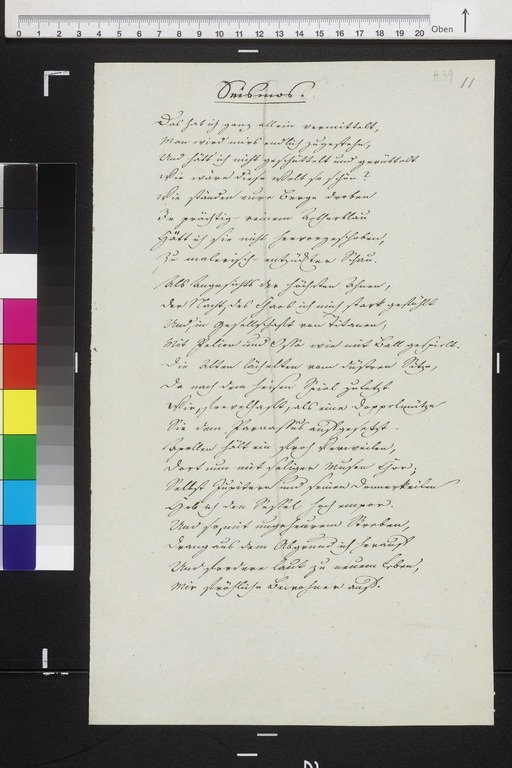 0 1 2 3 4 5 6 7 8 9 10 11 12 13 14 15 16 17 18 19 20 Oben
11
Seismos.
Das hab ich ganz allein vermittelt,
Man wird mirs endlich zugestehn,
Und hätt ich nicht geschüttelt und gerüttelt
Wie wäre diese Welt so schön?
Wie ständen eure Berge droben
In prächtig-reinem Aetherblau
Hätt ich sie nicht hervorgeschoben,
Zu malerisch-entzückter Schau.
Als Angesichts der höchsten Ahnen,
Der Nacht, des Chaos ich mich stark gestählt
Und, in Gesellschaft von Titanen,
Mit Pelion und Ossa wie mit Ball gespielt.
Die Alten lächelten vom düstren Sitze,
Da nach dem heisen Spiel zuletzt
Wir, frevelhaft, als eine Doppelmütze
Sie dem Parnassus aufgesetzt.
Apollen hält ein froh Verweilen,
Dort nun mit seliger Musen Chor;
Selbst Jupitern und seinen Donnerkeilen
Hob ich den Sessel hoch empor.
Und so, mit ungeheurem Streben,
Drang aus dem Abgrund ich herauf
Und fordere laut zu neuem Leben,
Mir fröhliche Bewohner auf.